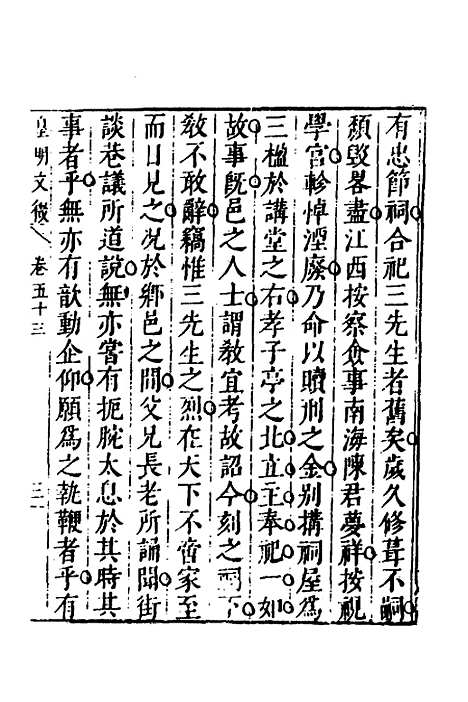 有忠節祠合祀三先生者舊矣歲久修葺不嗣
頹毀畧盡江西按察僉事南海陳君夢祥按視
學宮軫悼湮廢乃命以贖刑之金别搆祠屋為
三楹於講堂之右孝子亭之北宜主奉祀一如
故事既邑之人士謂教宜考故詔今刻之祠下
敎不敢辭竊惟三先生之烈在天下不啻家至
而日見之况於鄉邑之間父兄長老所誦聞街
談巷議所道說無亦嘗有扼腕太息於其時其
事者乎無亦有歆動企仰願為之執鞭者乎有
皇明文徵 卷五十三